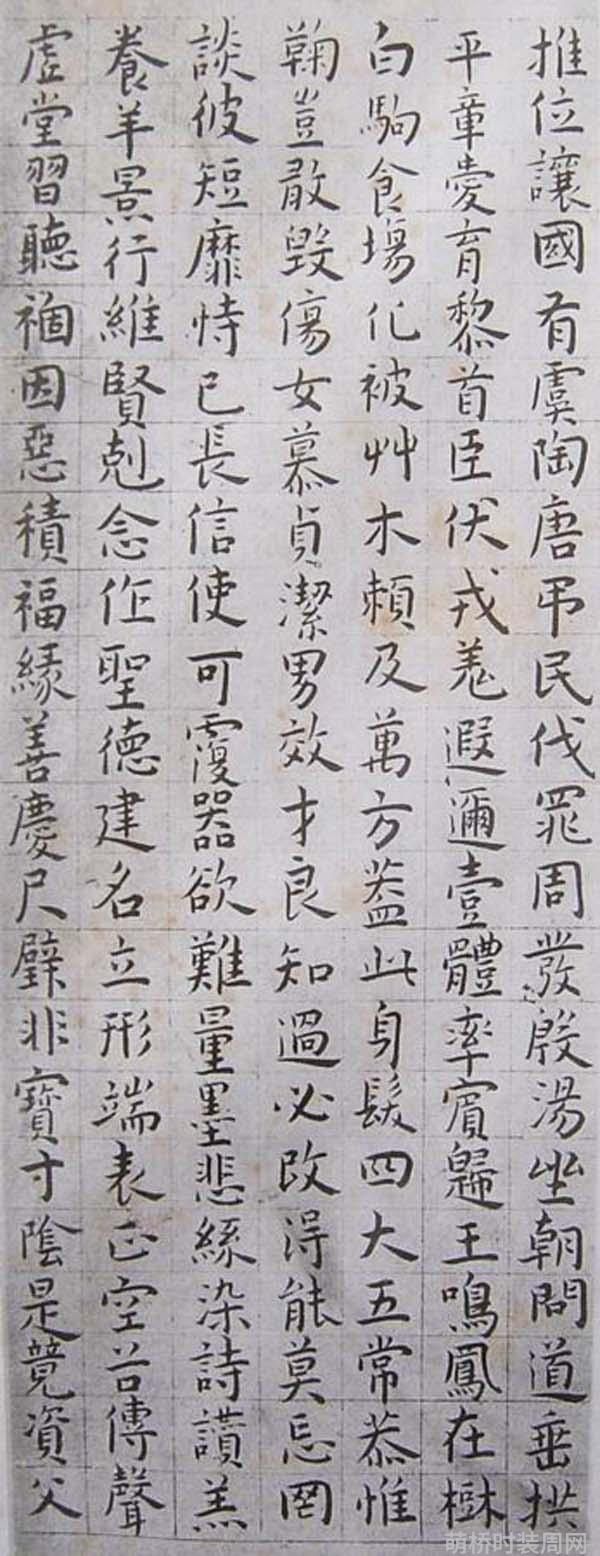 推位讓國有虞陶唐弔民伐罪周發殷湯坐朝問道垂拱
平章愛育黎首臣伏戎羌遐邇壹體率賓歸王鳴鳳在樹
白駒食場化被艸木賴及萬方蓋此身髮四大五常恭惟
鞠豈敢毀傷女慕貞潔男效才良知過必改得能莫忘罔
談彼短靡恃已長信使可覆器欲難量墨悲絲染詩讚羔
養羊景行維賢剋念作聖德建名立形端表正空谷傳聲
虛堂習聽禍因惡積福緣善慶尺璧非寶寸陰是競資父
萌桥时装周网